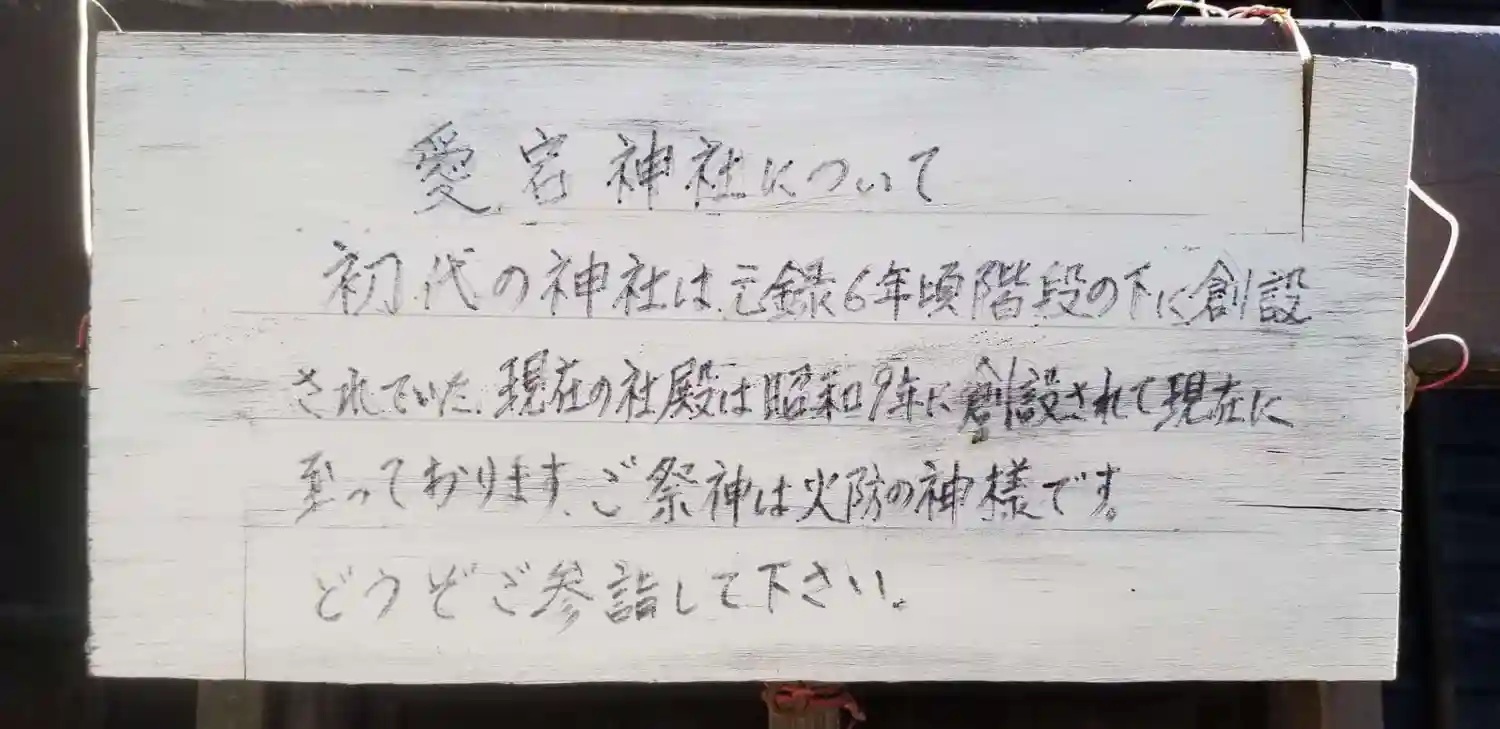 愛宕神社について
初代の神社は、元録6年頃階段の下に創設
されていた、現在の社殿は昭和9年に創設されて現在に
至っております、ご祭神は火防の神様です。
どうぞご参詣して下さい。